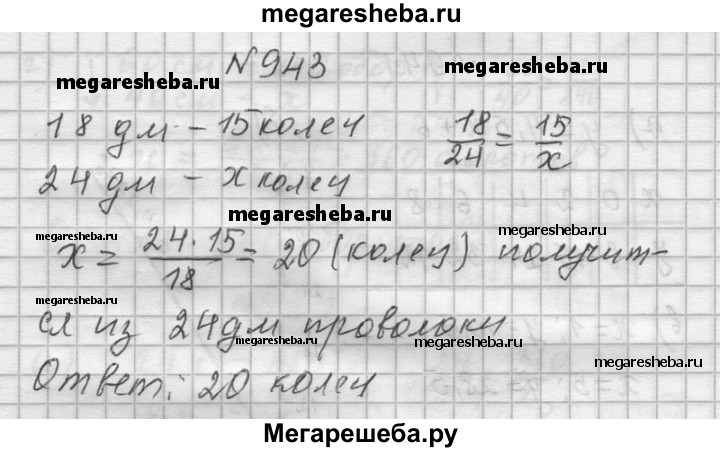 megaresheba.ru
№943
megaresheba.ru megaresheba.ru
18 дм – 15 колец 18/24 = 15/x
24 дм – x колец
megaresheba.ru
megaresheba.ru megaresheba.ru
x = 24·15/18 = 20 (колец) получит-
megaresheba.ru
megaresheba.ru
ся из 24 дм проволоки
megaresheba.ru megaresheba.ru
megaresheba.ru
Ответ: 20 колец
megaresheba.ru megaresheba.ru
Мегарешеба.ру